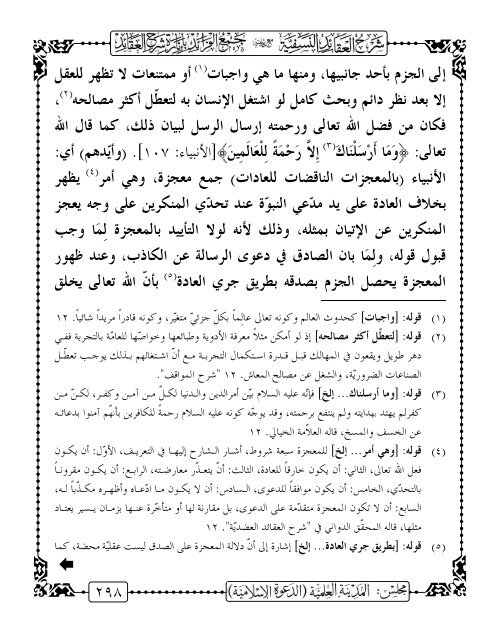 شرح العقائد النسفية مع جمع الفرائد بإنارة شرح العقائد
إلى الجزم بأحد جانبيها، ومنها ما هي واجبات(١) أو ممتنعات لا تظهر للعقل
إلا بعد نظر دائم وبحث كامل لو اشتغل الإنسان به لتعطّل أكثر مصالحه(٢)،
فكان من فضل الله تعالى ورحمته إرسال الرسل لبيان ذلك، كما قال الله
تعالى: ﴿وَمَا أَرْسَلْنَاكَ(٣) إِلَّا رَحْمَةً لِلْعَالَمِينَ﴾ [الأنبياء: ١٠٧]. (وأيّدهم) أي:
الأنبياء (بالمعجزات الناقضات للعادات) جمع معجزة، وهي أمر(٤) يظهر
بخلاف العادة على يد مدّعي النبوّة عند تحدّي المنكرين على وجه يعجز
المنكرين عن الإتيان بمثله، وذلك لأنه لولا التأييد بالمعجزة لِمَا وجب
قبول قوله، ولِمَا بان الصادق في دعوى الرسالة عن الكاذب، وعند ظهور
المعجزة يحصل الجزم بصدقه بطريق جري العادة(٥) بأنّ الله تعالى يخلق
(١) قوله: [واجبات] كحدوث العالم وكونه تعالى عالِماً بكلّ جزئيّ متغيّر، وكونه قادراً مريداً شائياً. ١٢
(٢) قوله: [لتعطّل أكثر مصالحه] إذ لو أمكن مثلاً معرفة الأدوية وطبائعها وخواصّها للعامّة بالتجربة ففي
دهر طويل ويقعون في المهالك قبل قدرة استكمال التجربة مع أنّ اشتغالهم بذلك يوجب تعطّل
الصناعات الضروريّة، والشغل عن مصالح المعاش. ١٢ "شرح المواقف".
(٣) قوله: [وما أرسلناك... إلخ] فإنّه عليه السلام بيّن أمر الدين والدنيا لكلّ من آمن وكفر، لكنّ من
كفر لم يهتد بهدايته ولم ينتفع برحمته، وقد يوجّه كونه عليه السلام رحمة للكافرين بأنّهم آمنوا بدعائه
عن الخسف والمسخ، قاله العلامة الخيالي. ١٢
(٤) قوله: [وهي أمر... إلخ] للمعجزة سبعة شروط، أشار الشارح إليها في التعريف، الأوّل: أن يكون
فعل الله تعالى، الثاني: أن يكون خارقاً للعادة، الثالث: أنْ يتعذّر معارضته، الرابع: أن يكون مقروناً
بالتحدّي، الخامس: أن يكون موافقاً للدعوى، السادس: أن لا يكون ما ادّعاه وأظهره مكذّباً له،
السابع: أن لا تكون المعجزة متقدّمة على الدعوى، بل مقارنة لها أو متأخّرة عنها بزمان يسير يعتاد
مثلها، قاله المحقّق الدواني في "شرح العقائد العضديّة". ١٢
(٥) قوله: [بطريق جري العادة... إلخ] إشارة إلى أنّ دلالة المعجزة على الصدق ليست عقليّة محضة، كما
مجلس: المدينة العلمية (الدعوة الإسلامية)
٢٩٨